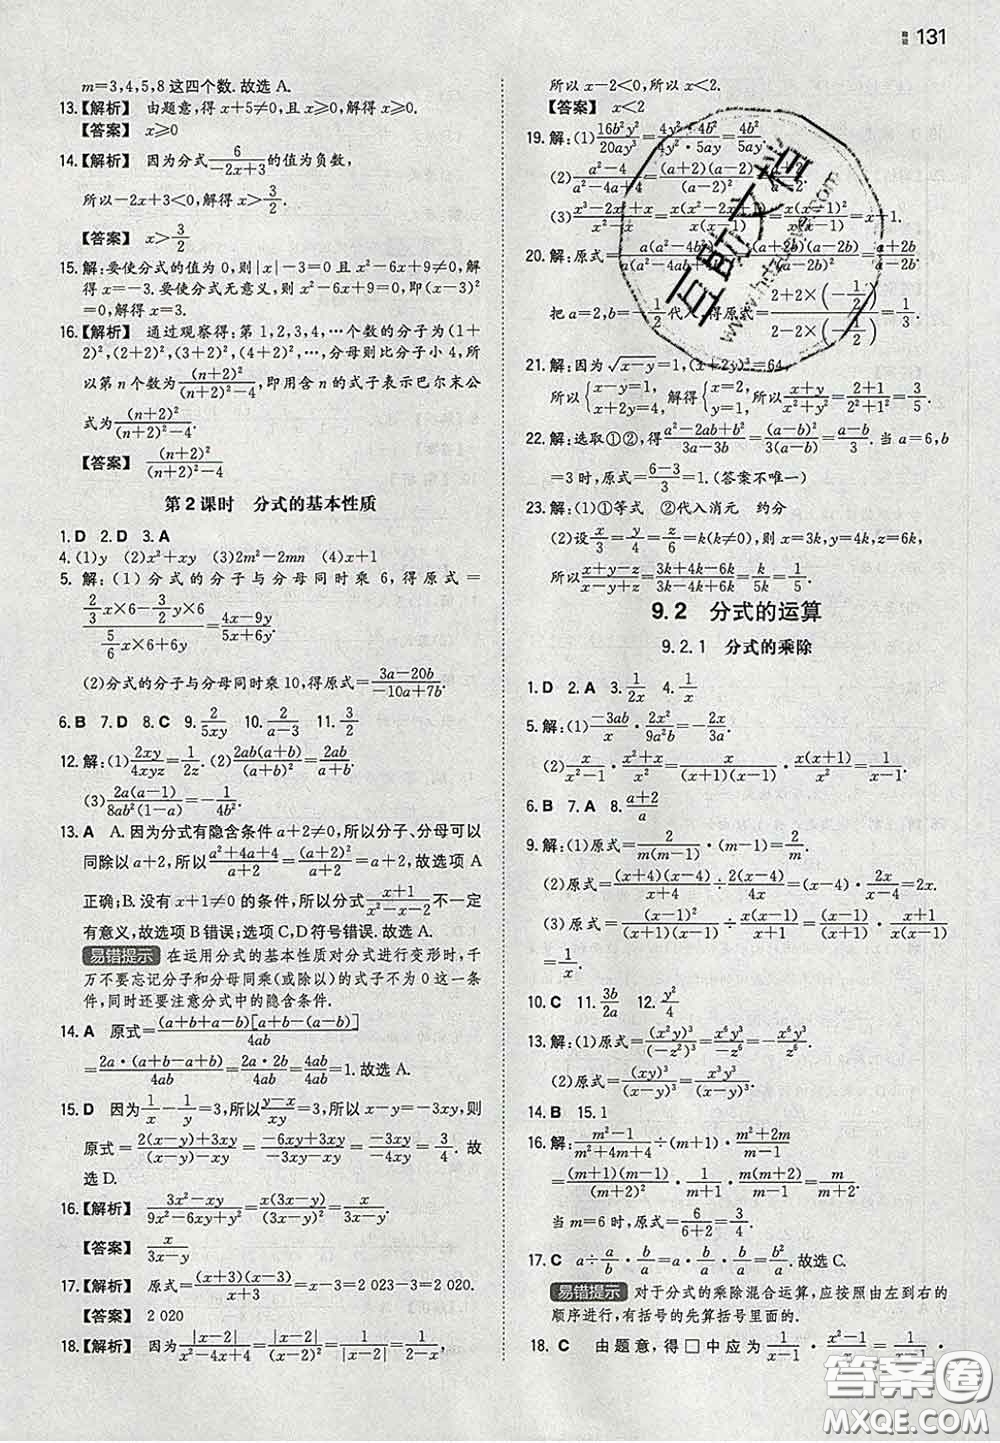 131
m=3,4,5,8 这四个数. 故选 A.
13.【解析】 由题意,得 x+5≠0,且 x≥0,解得 x≥0.
【答案】 x≥0
14.【解析】 因为分式 6/(-2x+3) 的值为负数,
所以-2x+3<0,解得 x>3/2.
【答案】 x>3/2
15.解:要使分式的值为 0,则|x|-3=0 且 x²-6x+9≠0,解
得 x=-3. 要使分式无意义,则 x²-6x+9=0,即(x-3)²
=0,解得 x=3.
16.【解析】 通过观察得:第 1,2,3,4,…个数的分子为(1+
2)²,(2+2)²,(3+2)²,(4+2)²,…分母则比分子小 4,所
以第 n 个数为 (n+2)²/((n+2)²-4),即用含 n 的式子表示巴尔末公
式为 (n+2)²/((n+2)²-4).
【答案】 (n+2)²/((n+2)²-4)
第 2 课时 分式的基本性质
1.D 2.D 3.A
4.(1)y (2)x²+xy (3)2m²-2mn (4)x+1
5.解:(1)分式的分子与分母同时乘 6,得原式=
(2/3 x×6-3/2 y×6)/(5/6 x×6+6y)=(4x-9y)/(5x+6y).
(2)分式的分子与分母同时乘10,得原式=(3a-20b)/(-10a+7b).
6.B 7.D 8.C 9. 2/(5xy) 10. 2/(a-3) 11. 3/2
12.解:(1) 2xy/(4xyz)=1/(2z). (2) 2ab(a+b)/(a+b)²=2ab/(a+b).
(3) 2a(a-1)/(8ab²(1-a))=-1/(4b²).
13.A A. 因为分式有隐含条件 a+2≠0,所以分子、分母可以
同除以 a+2,故 (a²+4a+4)/(a+2)=(a+2)²/(a+2)=a+2,故选项 A
正确;B. 没有 x+1≠0 的条件,所以分式 (x+1)/(x²-x-2) 不一定
有意义,故选项 B 错误;选项 C,D 符号错误. 故选 A.
易错提示 在运用分式的基本性质对分式进行变形时,千
万不要忘记分子和分母同乘(或除以)的式子不为 0 这一条
件,同时还要注意分式中的隐含条件.
14.A 原式=(a+b+a-b)[a+b-(a-b)]/(4ab)
=2a·(a+b-a+b)/(4ab)=2a·2b/(4ab)=4ab/(4ab)=1. 故选 A.
15.D 因为 1/x-1/y=3,所以 (y-x)/(xy)=3,所以 x-y=-3xy,则
原式=(2(x-y)+3xy)/((x-y)-xy)=(-6xy+3xy)/(-3xy-xy)=(-3xy)/(-4xy)=3/4. 故
选 D.
16.【解析】 (3x²-xy)/(9x²-6xy+y²)=x(3x-y)/(3x-y)²=x/(3x-y).
【答案】 x/(3x-y)
17.【解析】 原式=(x+3)(x-3)/(x+3)=x-3=2 023-3=2 020.
【答案】 2 020
18.【解析】 因为 |x-2|/(x²-4x+4)=|x-2|/(x-2)²=1/|x-2|=-1/(x-2),
所以 x-2<0,所以 x<2.
【答案】 x<2
19.解:(1) 16b²y²/(20ay³)=(4y²·4b²)/(4y²·5ay)=4b²/(5ay).
(2) (a²-4)/(a²-4a+4)=(a+2)(a-2)/(a-2)²=(a+2)/(a-2).
(3) (x³-2x²+x)/(x²-x)=x(x²-2x+1)/(x(x-1))=x(x-1)²/(x(x-1))=x-1.
把 a=2,b=-1/2 代入,得原式=(2+2×(-1/2))/(2-2×(-1/2))=1/3.
21.解:因为 √(x-y)=1,(x+2y)³=64,
所以 {x-y=1, x+2y=4, 解得 {x=2, y=1, 所以 (x+y)/(x²+y²)=(2+1)/(2²+1²)=3/5.
22.解:选取①②,得 (a²-2ab+b²)/(3a-3b)=(a-b)²/(3(a-b))=(a-b)/3. 当 a=6,b
=3 时,原式=(6-3)/3=1. (答案不唯一)
23.解:(1)①等式 ②代入消元 约分
(2)设 x/3=y/4=z/6=k(k≠0),则 x=3k,y=4k,z=6k,
所以 (x+y-z)/(x-y+z)=(3k+4k-6k)/(3k-4k+6k)=k/(5k)=1/5.
9.2 分式的运算
9.2.1 分式的乘除
1.D 2.A 3. 1/(2x) 4. 1/x
5.解:(1) (-3ab)/x·2x²/(9a²b)=-2x/(3a).
(2) x/(x²-1)·(x²+x)/x²=x/((x+1)(x-1))·x(x+1)/x²=1/(x-1).
6.B 7.A 8. (a+2)/a
9.解:(1)原式=2/(m(m-1))·(m-1)=2/m.
(2)原式=(x+4)(x-4)/(x+4)÷2(x-4)/(4x)=(x-4)·2x/(x-4)=2x.
10.C 11. 3b/(2a) 12. y²/4
13.解:(1)原式=(x²y)³/(-z²)³=x⁶y³/(-z⁶)=-x⁶y³/z⁶.
(2)原式=(xy)³/(x-y)³=x³y³/(x-y)³.
14.B 15.1
16.解: (m²-1)/(m²+4m+4)÷(m+1)·(m²+2m)/(m-1)
=(m+1)(m-1)/(m+2)²·1/(m+1)·m(m+2)/(m-1)=m/(m+2).
当 m=6 时,原式=6/(6+2)=3/4.
17.C a÷a/b·b/a=a·b/a·b/a=b²/a. 故选 C.
易错提示 对于分式的乘除混合运算,应按照由左到右的
顺序进行,有括号的先算括号里面的.
18.C 由题意,得□中应为
互助文档
答案圈
MXQE.COM